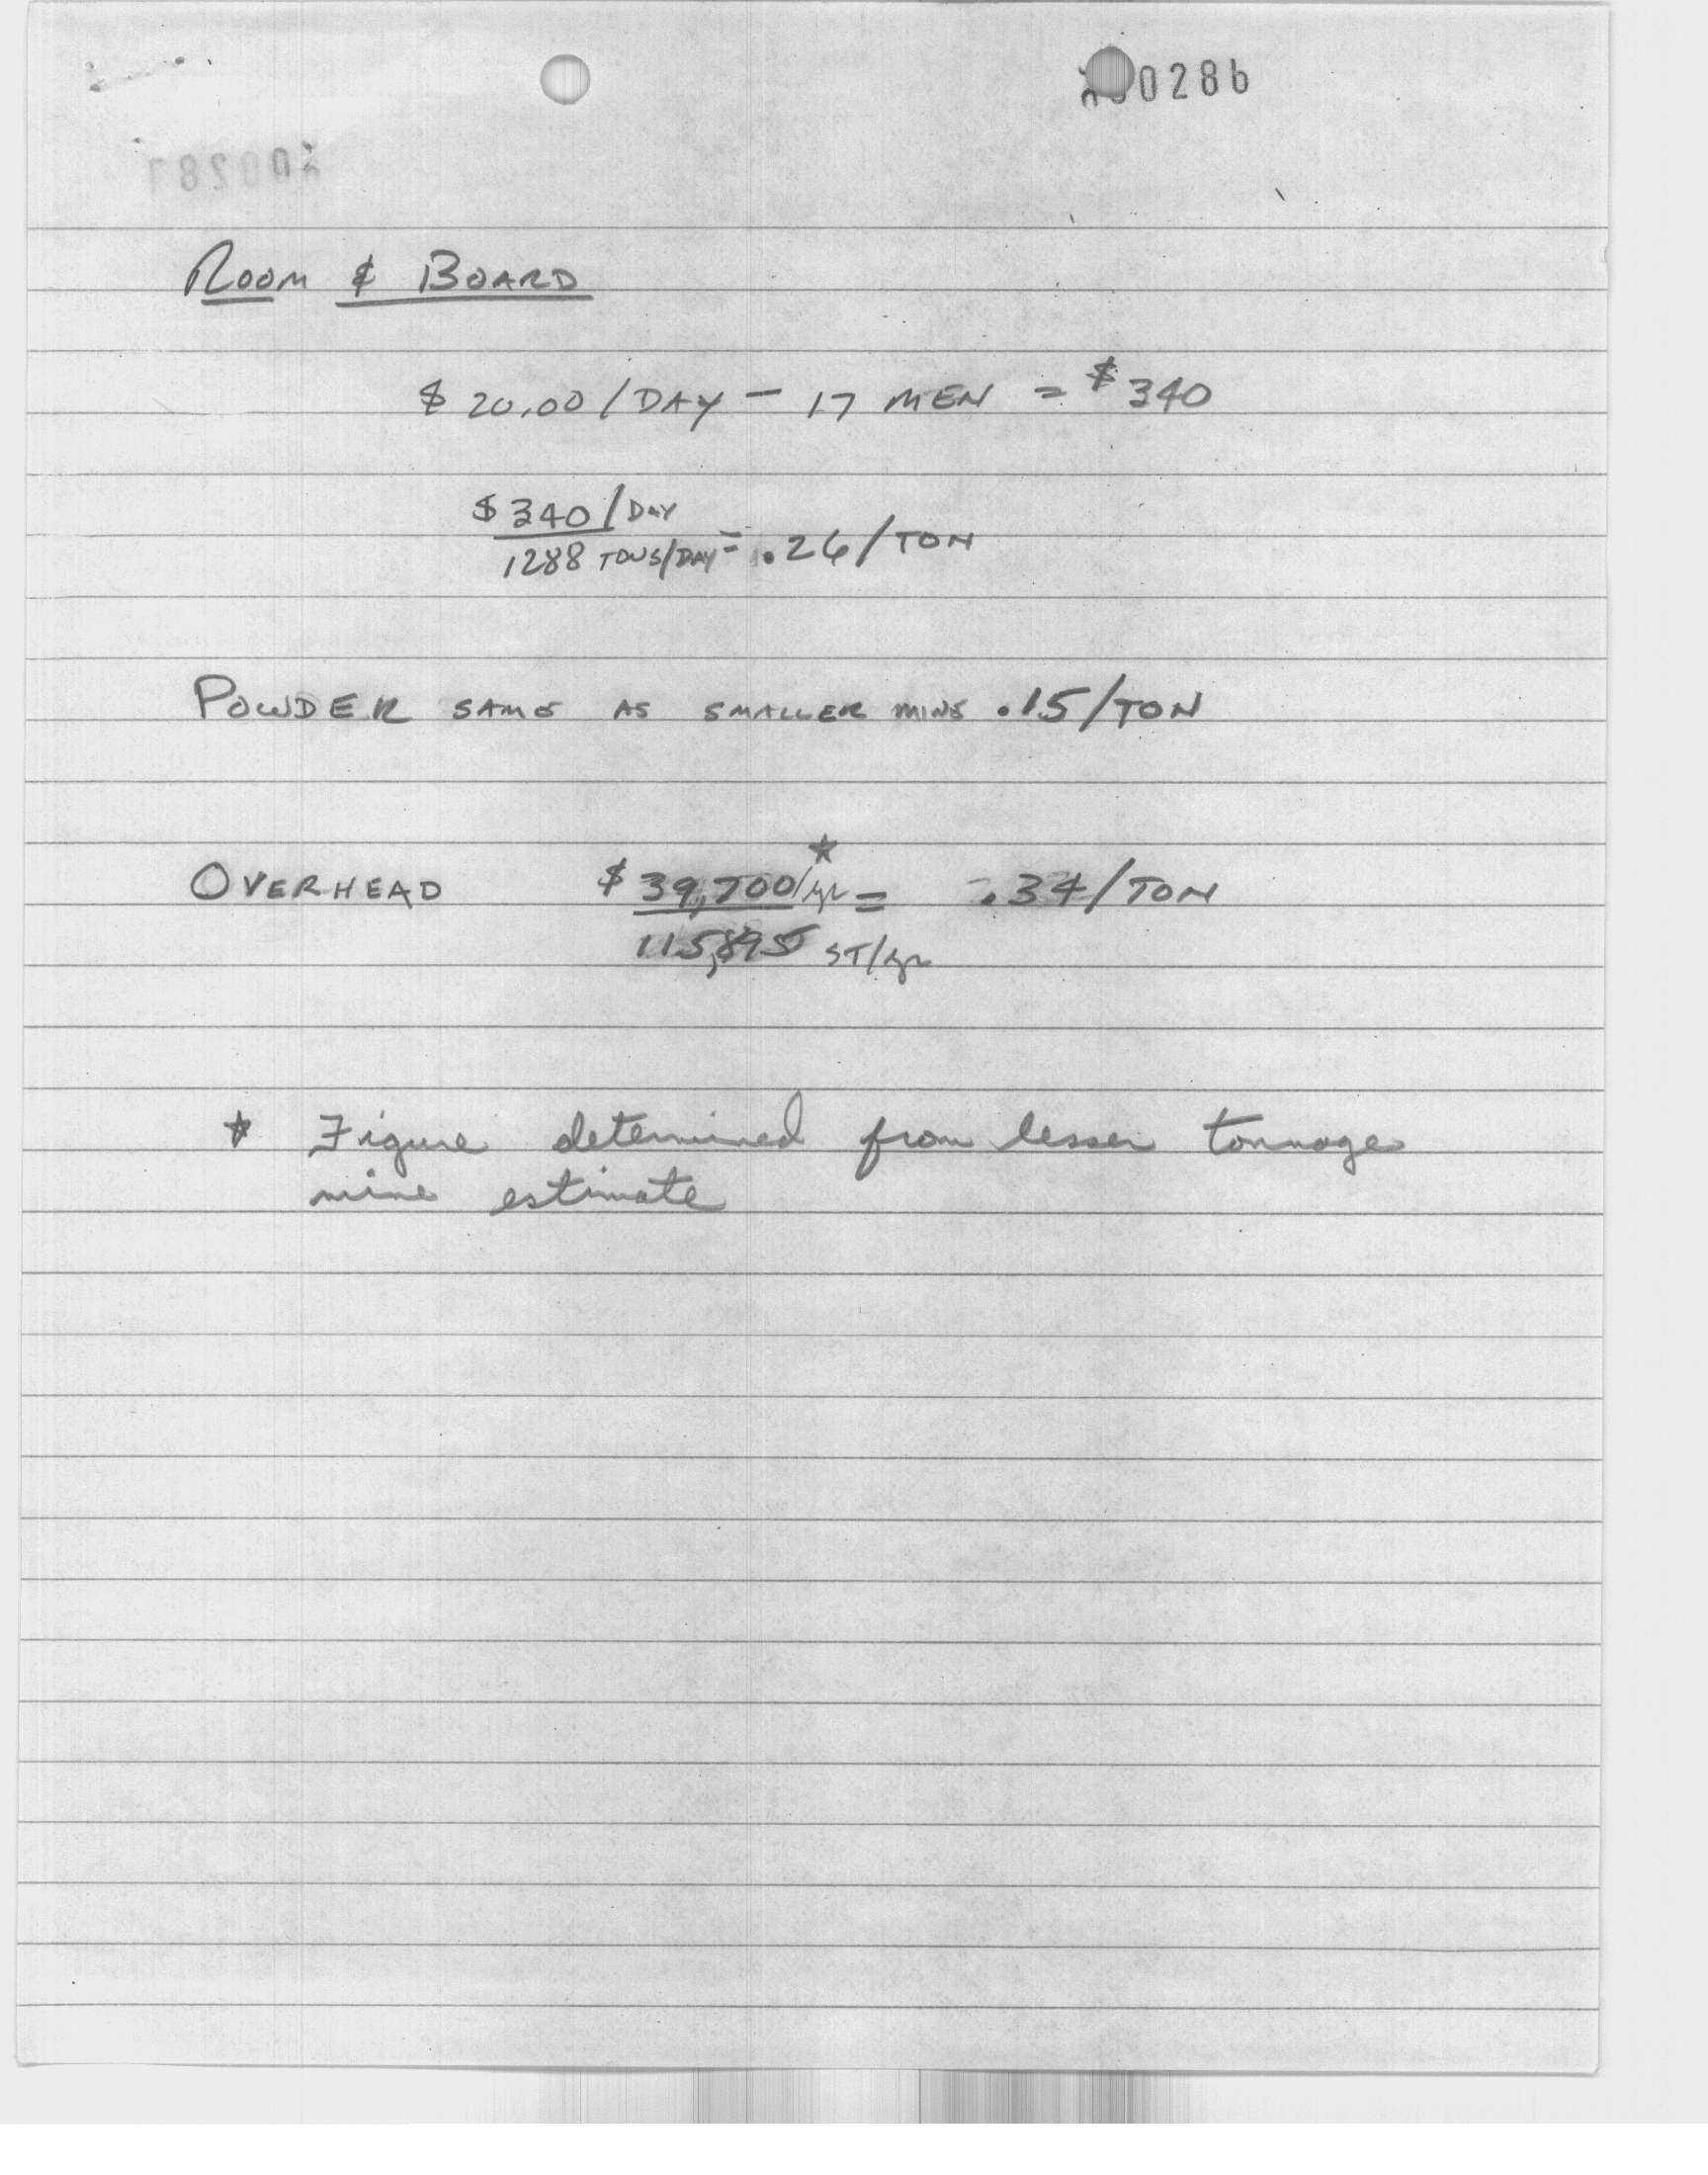 0286
ROOM & BOARD
$20.00/DAY - 17 MEN = $340
$340/DAY
1288 TONS/DAY = .26/TON
POWDER SAME AS SMALLER MINE .15/TON
OVERHEAD $39,700/yr* = .34/TON
115,895 ST/yr
* Figure determined from lesser tonnage
mine estimate